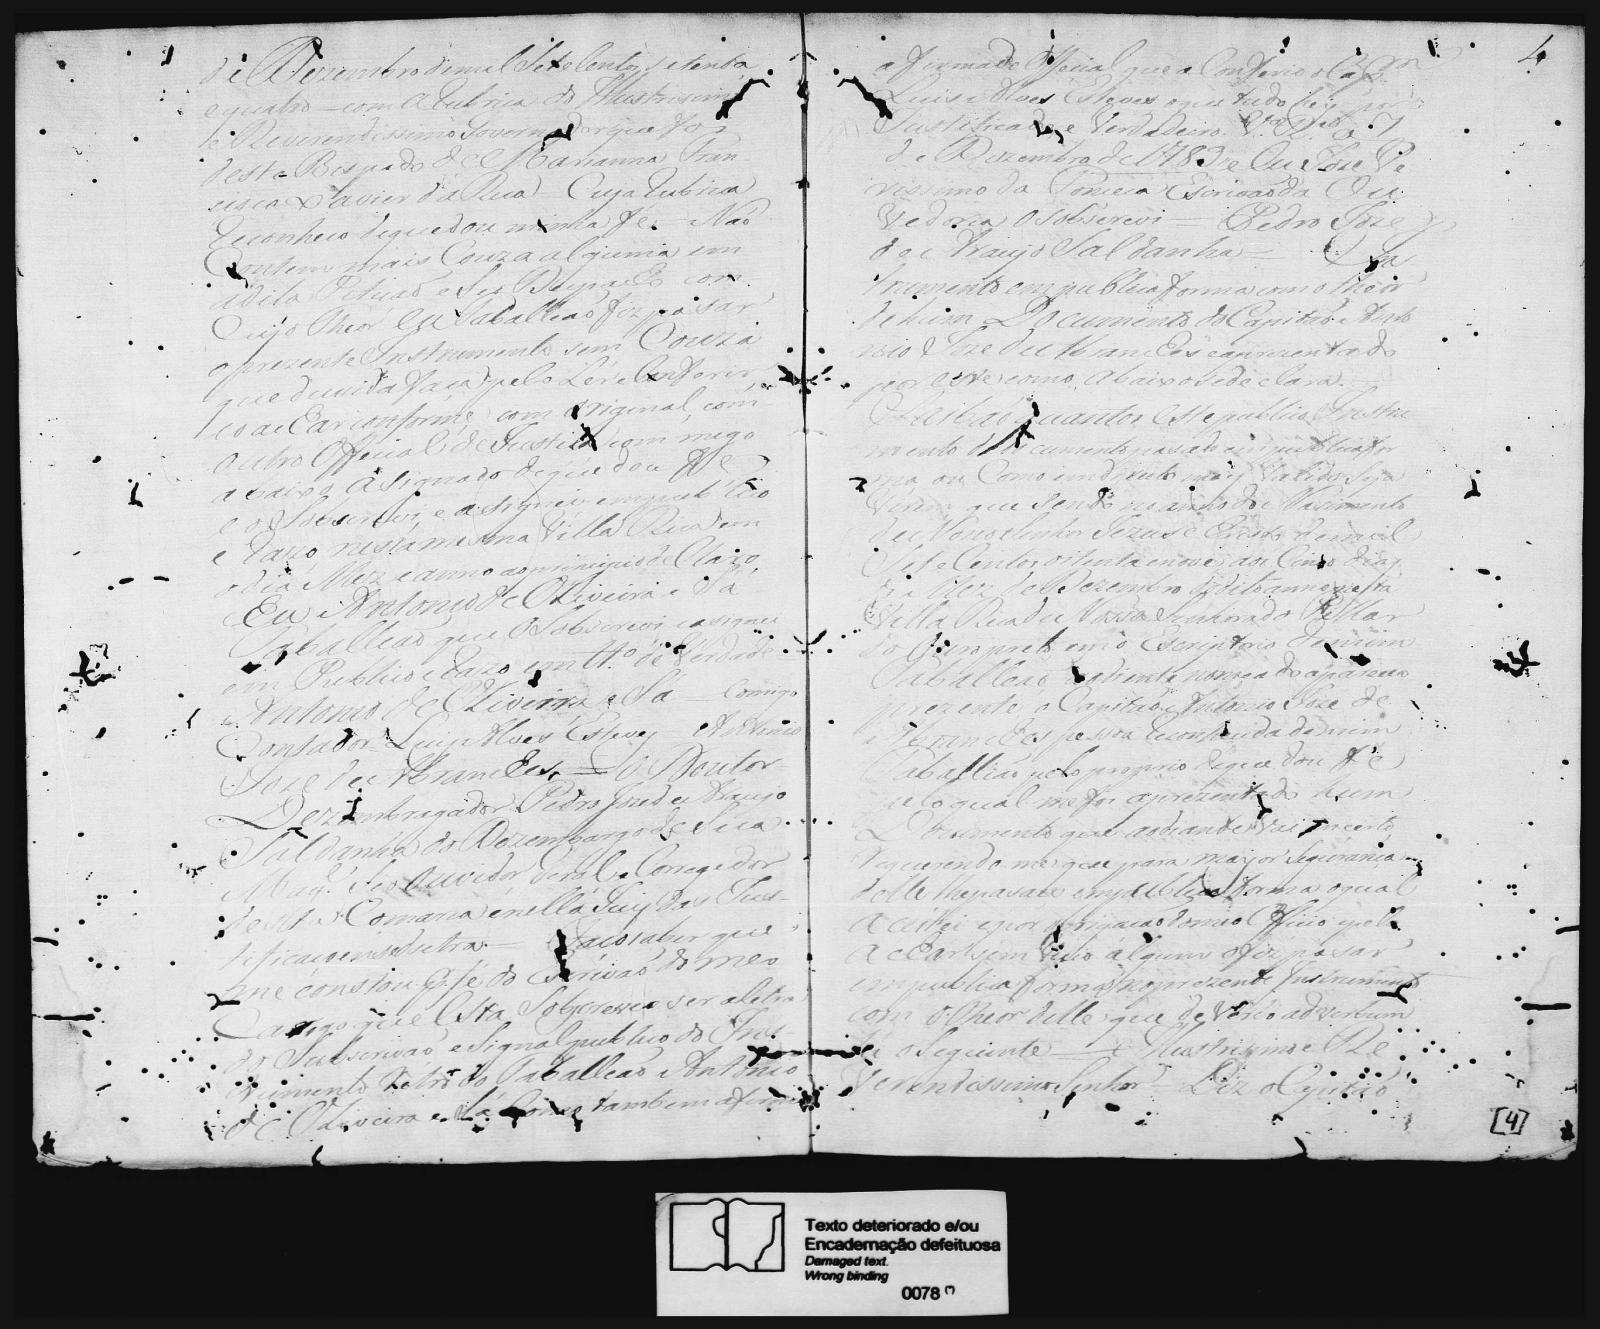 de Dezembro de mil Sete Centos, Setenta
e quatro — com a Rubrica do Illustrissimo
e Reverendissimo Governador que foz
deste Bispado de Marianna Fran-
cisco Xavier da Rua Cuja Rubrica
Reconheço de que dou minha fe. — Não
Contem mais Couza alguma em
a dita Petição e Seo Despacho com
Cujo theor eu Taballeão fiz pasar
o prezente Instrumento sem Couza
que duvida faça pelo Ler e Conferir
e o achar conforme com o original, com
outro Official de Justiça com migo
abaixo asignado de que dou fe
e o Sobscrevi, e asignei em publico
e Razo nesta mesma Villa Rica em
o dia Mez e anno ao principio de Clarado
Eu Antonio de Oliveira e Sá
Taballeão que o Sobscrevi e asignei
em Publico e Razo em tt.º de Verdade
Antonio de Oliveira e Sá — Comigo
Contador Luis Alves Esteves Antonio
Joze de Abranches, — O Doutor
Dezembragador Pedro Joze de Araujo
Saldanha do Dezembargo de Sua
Mag.e Seo Ouvidor Geral e Corregedor
desta Comarca e nella Juiz das Jus-
tificaçoens — Faço saber que
me constou por fé do Escrivão do meo
Cargo que esta Sobscreveo ser a letra
da Subscrição e Signal publico do Ins-
trumento Retro do Taballeão Antonio
de Oliveira e Sá Como tambem a firma
4
a firma do Official que a Conferio o
Luis Alves Esteves o que tudo hey por
Justificado e Verdadeiro. a 7
de Dezembro de 1789 e Eu Joze Ve
rissimo da Fonseca Escrivão da Ou
vedoria o sobscrevi — Pedro Joze
de Araujo Saldanha — Ins
trumento em publica forma com o theor
de hum Documento do Capitão Anto
nio Joze de Abranches aprezentado
por Elle como, abaixo se declara. —
Saibão quantos este publico Instru
mento de Documento pasado em publica for
ma ou Como em direito mais Valido Seja
Virem que Sendo no anno do Nasimento
de Nosso Senhor Jezus Christo de mil
Sete Centos oitenta e nove aos Cinco dias
do Mez de Dezembro do dito anno nesta
Villa Rica de Nossa Senhora do Pillar
do Ouro preto em o Escriptorio de mim
Taballeão adiante nomeado apareceo
prezente o Capitão Antonio Joze de
Abranches pessoa Reconhecida de mim
Taballião pelo proprio de que dou fé
pelo qual me foi aprezentado hum
Documento que adiante vai inserto
Requerendo me que para mayor Seguranca
delle lhe pasase em publica forma o qual
aceitei e por obrigação do meo Officio e pello
achar sem Vicio algum o fiz pasar
em publica forma no prezente Instrumento
com o theor delle que de Verbo ad Verbum
he o seguinte — Illustrissimo e Re
verendissimo Senhor Diz o Capitão
[4]
Texto deteriorado e/ou
Encadernação defeituosa
Damaged text.
Wrong binding
0078 (*)